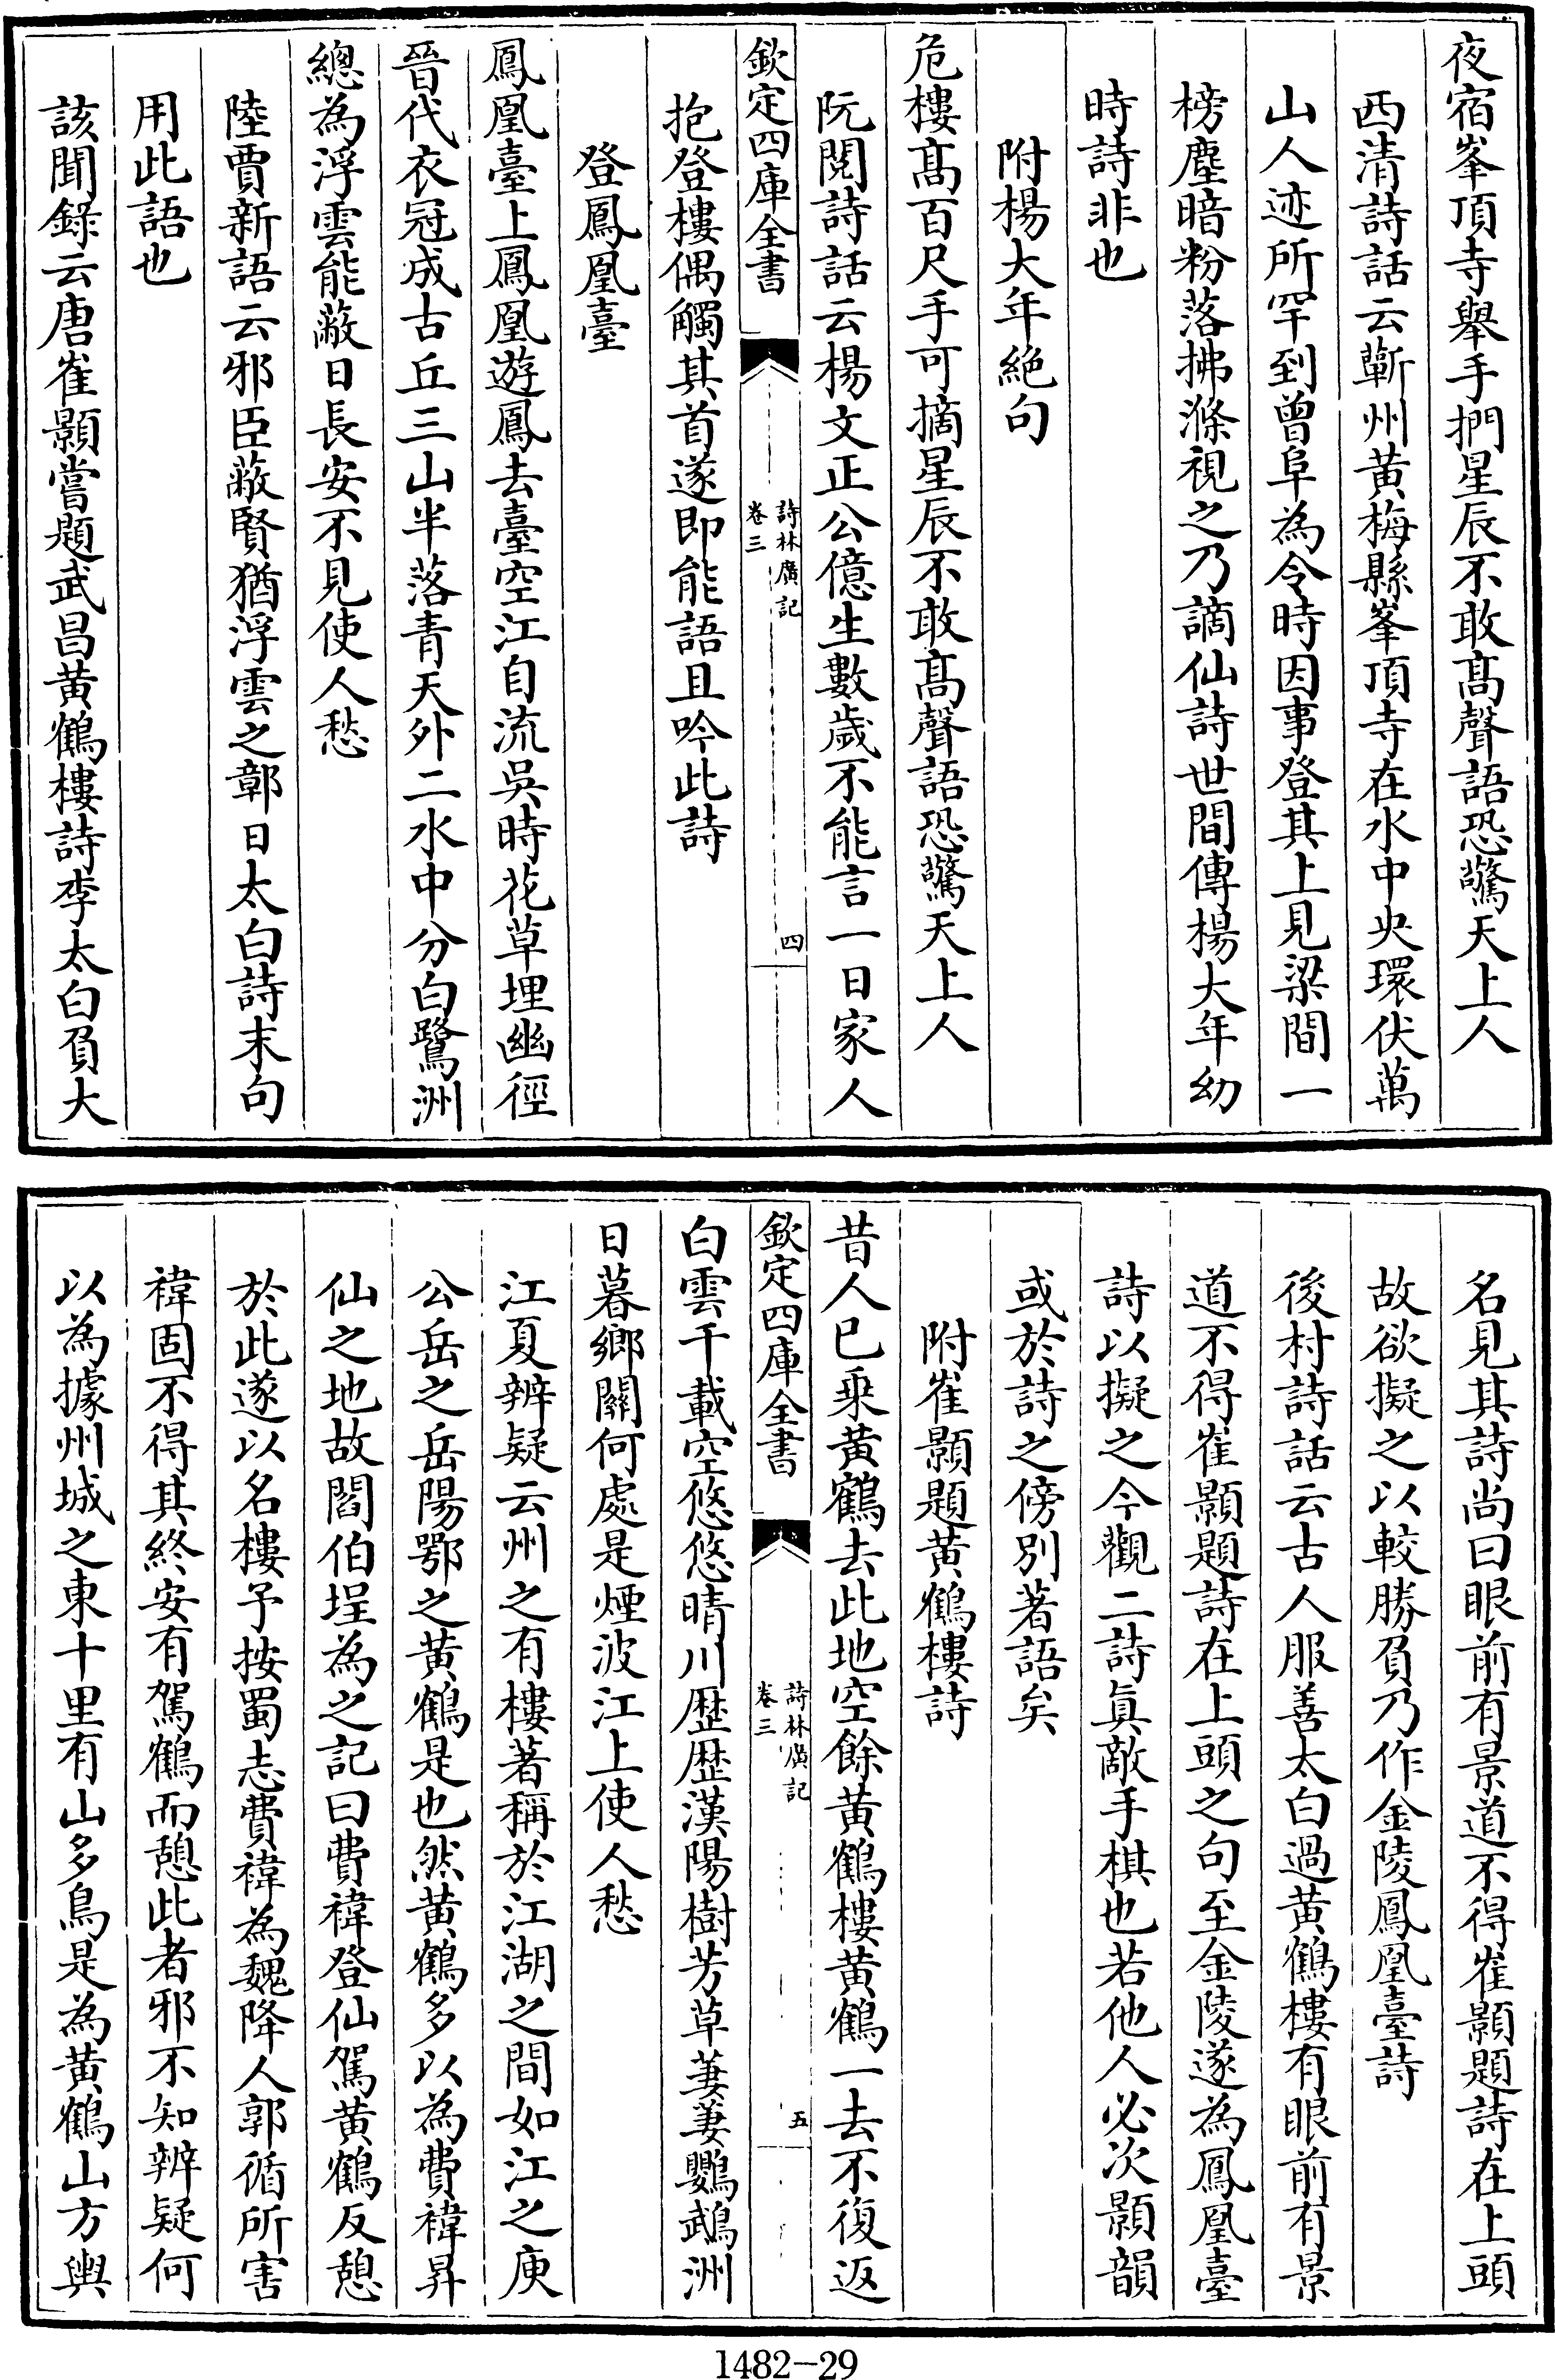 夜宿峯頂寺舉手捫星辰不敢髙聲語恐驚天上人
西清詩話云蘄州黄梅縣峯頂寺在水中央環伏萬
山人迹所罕到曾阜為令時因事登其上見梁間一
榜塵暗粉落拂滌視之乃謫仙詩世間傳楊大年幼
時詩非也
附楊大年絶句
危樓髙百尺手可摘星辰不敢髙聲語恐驚天上人
阮閱詩話云楊文正公億生數歲不能言一日家人
欽定四庫全書
詩林廣記
卷三
四
抱登樓偶觸其首遂即能語且吟此詩
登鳳凰臺
鳳凰臺上鳳凰遊鳳去臺空江自流吳時花草埋幽徑
晉代衣冠成古丘三山半落青天外二水中分白鷺洲
總為浮雲能蔽日長安不見使人愁
陸賈新語云邪臣蔽賢猶浮雲之鄣日太白詩末句
用此語也
該聞錄云唐崔顥嘗題武昌黄鶴樓詩李太白負大
名見其詩尚曰眼前有景道不得崔顥題詩在上頭
故欲擬之以較勝負乃作金陵鳳凰臺詩
後村詩話云古人服善太白過黄鶴樓有眼前有景
道不得崔顥題詩在上頭之句至金陵遂為鳳凰臺
詩以擬之今觀二詩眞敵手棋也若他人必次顥韻
或於詩之傍別著語矣
附崔顥題黄鶴樓詩
昔人已乘黄鶴去此地空餘黄鶴樓黄鶴一去不復返
欽定四庫全書
詩林廣記
卷三
五
白雲千載空悠悠晴川歴歴漢陽樹芳草萋萋鸚鵡洲
日暮鄉關何處是煙波江上使人愁
江夏辨疑云州之有樓著稱於江湖之間如江之庾
公岳之岳陽鄂之黄鶴是也然黄鶴多以為費禕昇
仙之地故閻伯埕為之記曰費禕登仙駕黄鶴反憩
於此遂以名樓予按蜀志費禕為魏降人郭循所害
禕固不得其終安有駕鶴而憩此者邪不知辨疑何
以為據州城之東十里有山多鳥是為黄鶴山方輿
1482-29